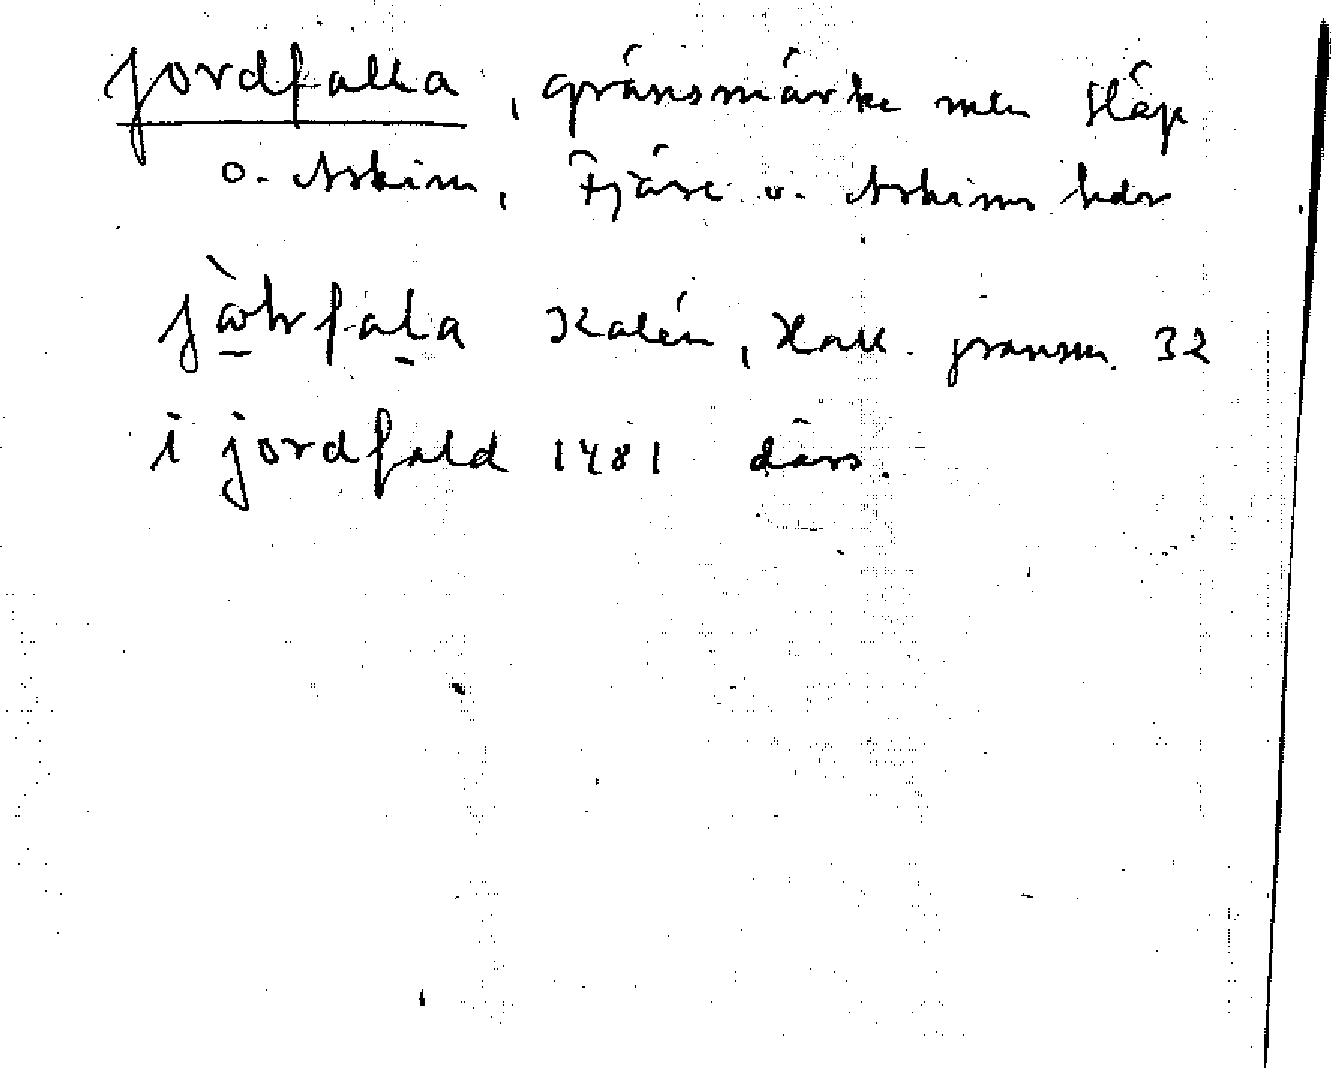 jordfalla, gränsmärke mellan Släp
o. Askim, Fjäre o. Askims hdr
Kalén, Hall. gränsm. 32
i jordfald 1481 därs.